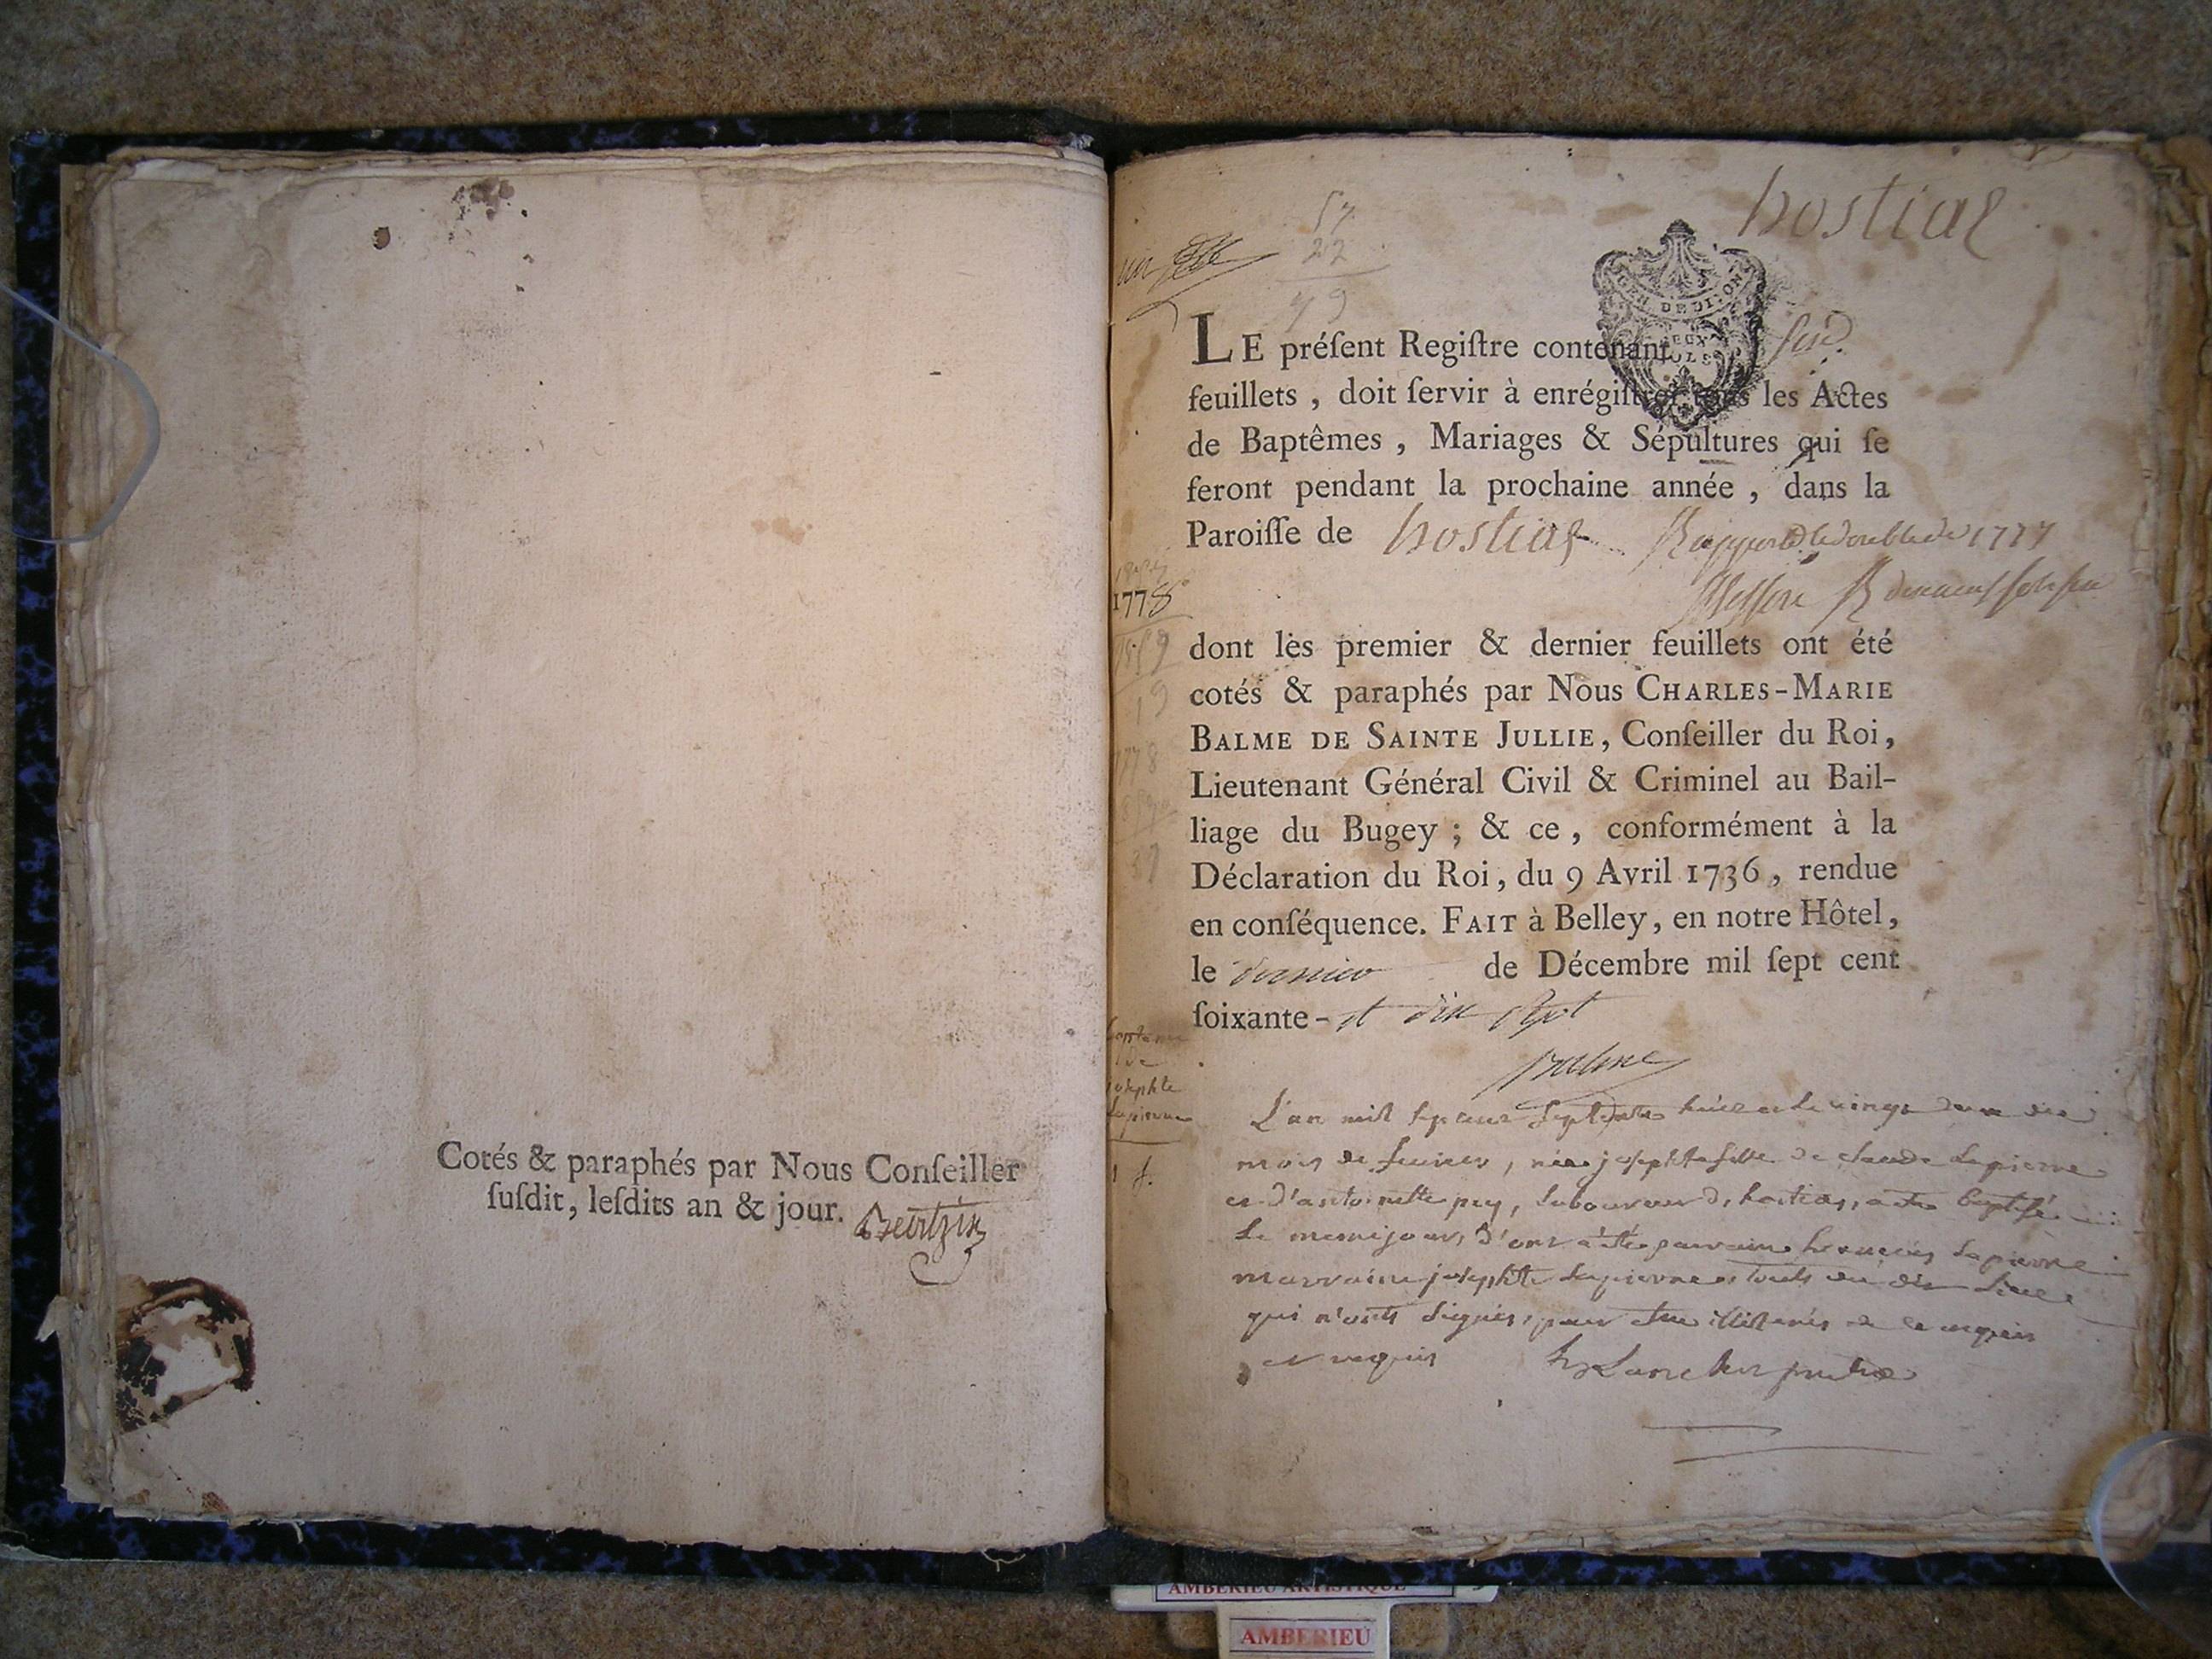 Cotés & paraphés par Nous Conſeiller
ſuſdit, leſdits an & jour.
hostiaz
57
22
GEN DE DIJON
DEUX
SOLS
LE préſent Regiſtre contenant
feuillets, doit ſervir à enrégiſtrer tous les Actes
de Baptêmes, Mariages & Sépultures qui ſe
feront pendant la prochaine année, dans la
Paroiſſe de hostiaz Rapporté le double de 1777
1778
dont les premier & dernier feuillets ont été
cotés & paraphés par Nous CHARLES-MARIE
BALME DE SAINTE JULLIE, Conſeiller du Roi,
Lieutenant Général Civil & Criminel au Bail-
liage du Bugey; & ce, conformément à la
Déclaration du Roi, du 9 Avril 1736, rendue
en conſéquence. FAIT à Belley, en notre Hôtel,
le dernier de Décembre mil ſept cent
ſoixante-et dix sept
Balme
josephte
Lapierre
1 f.
L'an mil sept cent septante huit et le vingt deux du
mois de fevrier, née josephte fille de claude Lapierre
et d'antoinette pey, laboureur d'hostiaz, a été baptisée
Le meme jour, d'ont a été parrain Lapierre
marraine josephte Lapierre touts du dit Lieu
qui n'onts signés, pour etre illiterés de ce enquis
et requis
AMBERIEU ARTISTIQUE
AMBERIEU